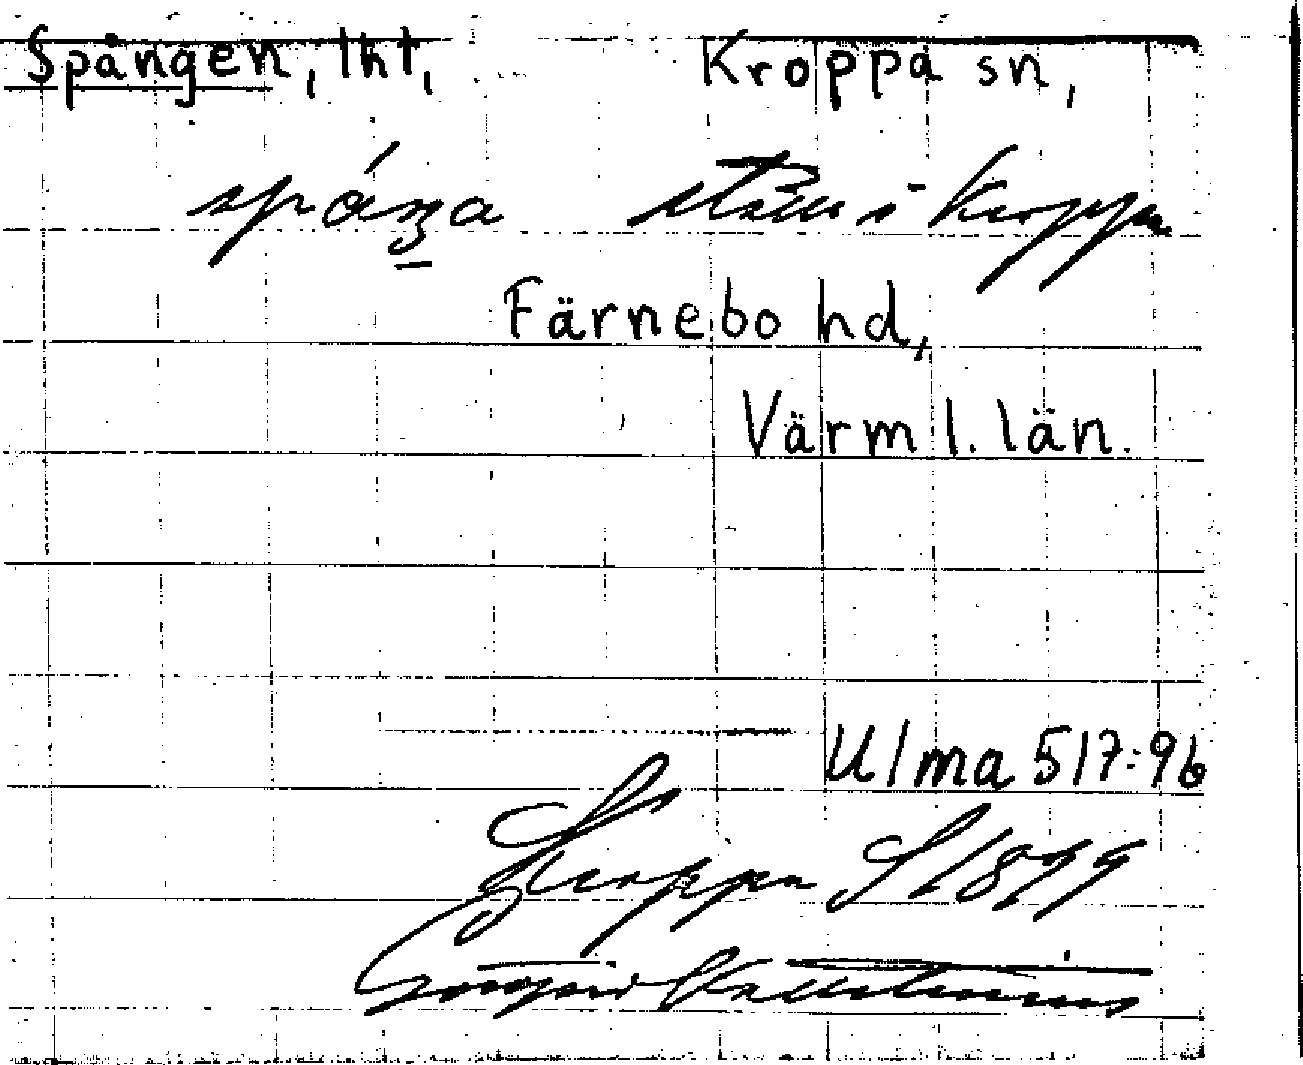 Spången, lht, Kroppa sn,
ställe i Kroppa
Färnebo hd,
Värml. län.
Ulma 517:96
Kroppa S 1879